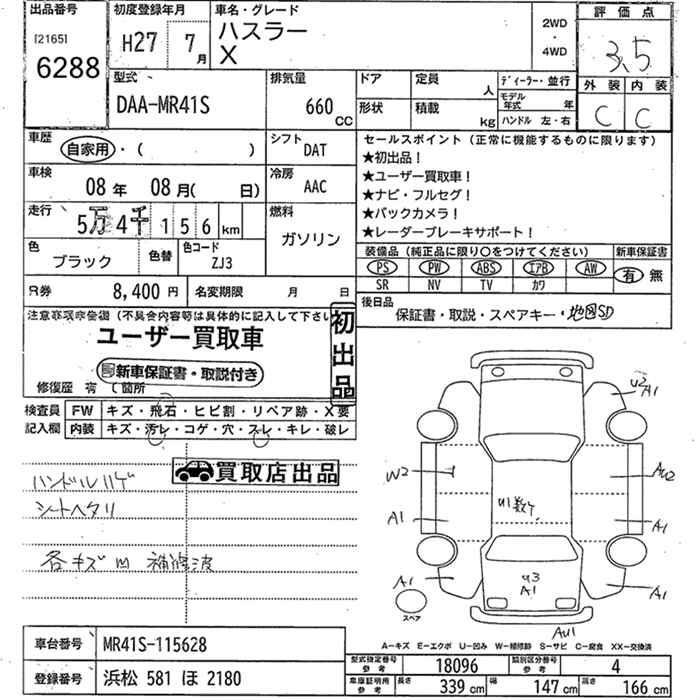 出品番号
[2165]
6288
初度登録年月
H27 7月
車名・グレード
ハスラー
X
2WD
・
4WD
評価点
3.5
外装 内装
C C
型式
DAA-MR41S
排気量
660 CC
ドア 定員 人
形状 積載 kg
ディーラー・並行
モデル年式 年
ハンドル 左・右
車歴
自家用・( )
シフト
DAT
車検
08年 08月( 日)
冷房
AAC
走行
5万4千156km
燃料
ガソリン
色
ブラック
色替
色コード
ZJ3
セールスポイント(正常に機能するものに限ります)
★初出品!
★ユーザー買取車!
★ナビ・フルセグ!
★バックカメラ!
★レーダーブレーキサポート!
装備品(純正品に限り○をつけてください) 新車保証書
PS PW ABS エアB AW 有・無
SR NV TV カワ
R券 8,400円 名変期限 月 日
後日品
保証書・取説・スペアキー・地図SD
注意事項 (不具合内容等は具体的に記入して下さい
ユーザー買取車
新車保証書・取説付き
初出品
修復歴 有 ( 箇所
検査員 FW キズ・飛石・ヒビ割・リペア跡・X要
記入欄 内装 キズ・汚レ・コゲ・穴・スレ・キレ・破レ
買取店出品
ハンドルハゲ
シートヘタリ
各キズ凹 補修波
U2
A1
W2
AU2
A1
A1
U1数ケ
U3
A1
A1
A1
スペア
AU1
A−キズ E−エクボ U−凹み W−補修跡 S−サビ C−腐食 XX−交換済
車台番号 MR41S-115628
登録番号 浜松 581 ほ 2180
型式指定番号 参考 18096 類別区分番号 参考 4
車庫証明用 参考 長さ 339cm 幅 147cm 高さ 166cm